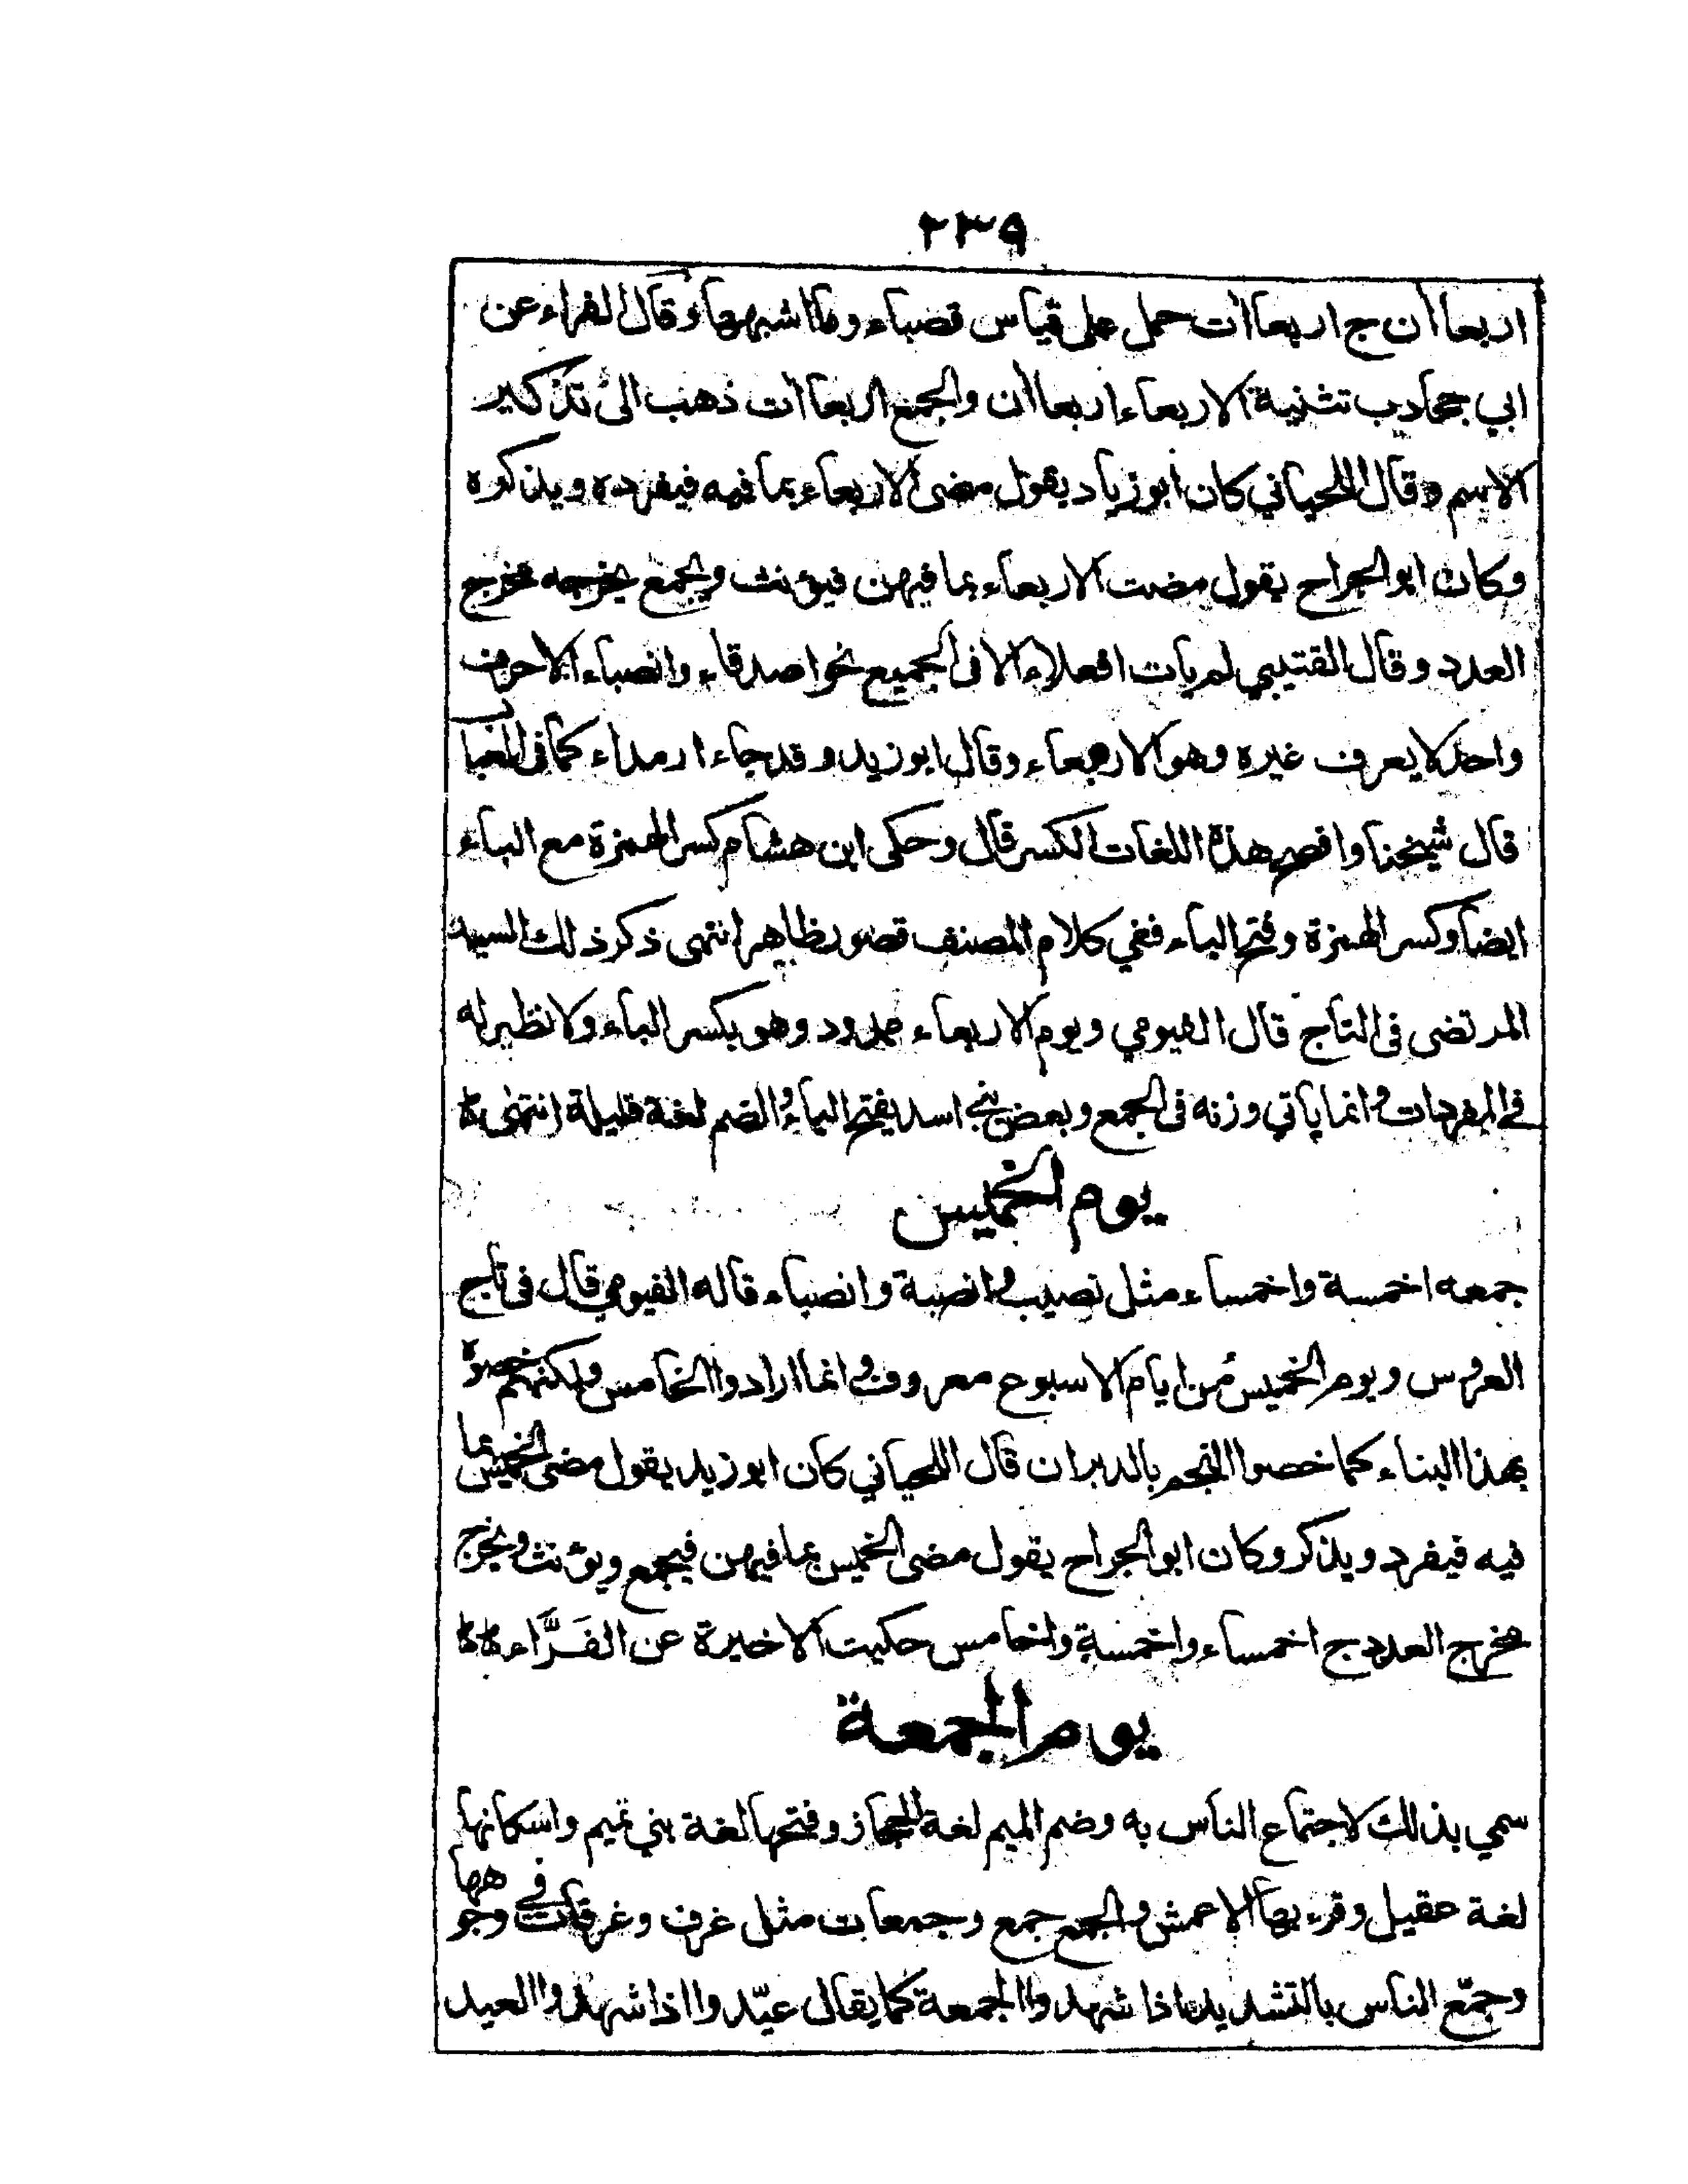 ٢٣٩
اربعاأن ج اربعاأت حمل على قياس قصباء وما اشبهها وقال الفراء عن
ابي جحادب تثنية الاربعاء اربعاأن والجمع اربعاأت ذهب الى تذكير
الاسم وقال اللحياني كان ابو زياد يقول مضى الاربعاء بما فيه فيفرده ويذكره
وكان ابو الجراح يقول مضت الاربعاء بما فيهن فيؤنث ويجمع يخرجه مخرج
العدد وقال القتيبي لم يات افعلاء الا فى الجميع نحو اصدقاء وانصباء الا حرف
واحد لا يعرف غيره وهو الاربعاء وقال ابو زيد وقد جاء ارمداء كما فى العباب
قال شيخنا وافصح هذه اللغات الكسر قال وحكى ابن هشام كسر الهمزة مع الباء
ايضا وكسر الهمزة وفتح الباء ففي كلام المصنف قصور ظاهر انتهى ذكر ذلك السيد
المرتضى فى التاج قال الفيومي ويوم الاربعاء ممدود وهو بكسر الباء ولا نظير له
فى المفردات وانما ياتي وزنه فى الجمع وبعض بني اسد يفتح الباء والضم لغة قليلة انتهى
يوم الخميس
جمعه اخمسة واخمساء مثل نصيب وانصبة وانصباء قاله الفيومي قال فى تاج
العروس ويوم الخميس من ايام الاسبوع معروف وانما ارادوا الخامس ولكنهم خصوه
بهذا البناء كما خصوا النجم بالدبران قال اللحياني كان ابو زيد يقول مضى الخميس بما
فيه فيفرد ويذكر وكان ابو الجراح يقول مضى الخميس بما فيهن فيجمع ويؤنث ويخرج
مخرج العدد ج اخمساء واخمسة واخامس حكيت الاخيرة عن الفَرَّاء
يوم الجمعة
سمي بذلك لاجتماع الناس به وضم الميم لغة الحجاز وفتحها لغة بني تميم واسكانها
لغة عقيل وقرء بها الاعمش والجمع جمع وجمعات مثل غرف وغرفات في وجوهها
وجمّع الناس بالتشديد اذا شهدوا الجمعة كما يقال عيّدوا اذا شهدوا العيد